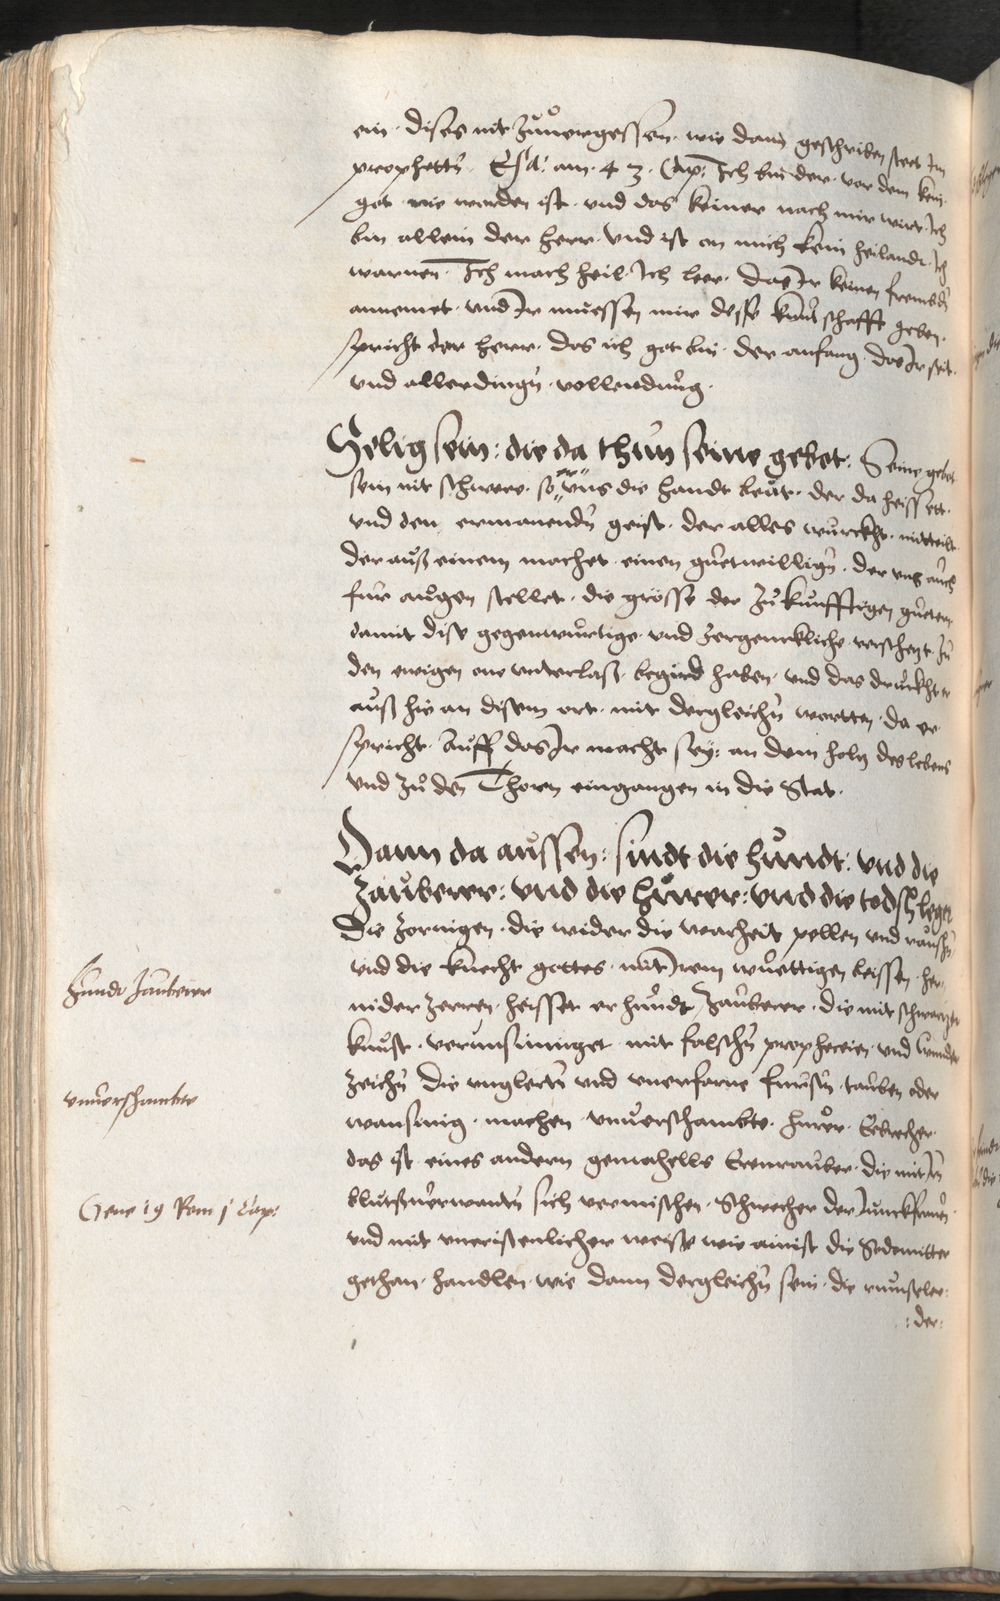 ein · dises nit zůuergessen · wie dann geschriben steet Im
prophettn̄ · Esa: am · 43 · Cap: Ich bin der · vor dem kein ·
got nie worden ist · und das keiner nach mir wirt · Ich
bin allein der herr · Und ist on mich kein heilandt · Ich
warnen · Ich mach heil · Ich leer · das Ir keinen frembdn̄
annemet · und Ir muessen mir desse kundtschafft geben ·
spricht der herr · das ich got bin · der anfang · das Ir seit ·
und allerdingn̄ · vollendung ·
Selig sein : die da thun seine gebot : Seine gebot
sein nit schwere · so er uns die handt beüt · der da heisset ·
und den ermanendn̄ geist · der alles wurckht · mitteilt
der auß einem machet einen guetwillign̄ · der uns auch
für augen stellet · die grösse der zukunfftigen guetern
damit dise gegenwurtige und zergenckliche verschetzt · zu
den ewigen one unterlaß · begird haben · und das druckht er
auß hie an disem ort · mit dergleichn̄ wortten · da er
spricht · Auff das Ir macht sey : an dem holtz des lebens
und zů den Thoren eingangen in die Stat ·
Dann da aussen : sindt die hundt : und die
zauberer : und die hurer : und die todschleger
Die zornigen · die wider die warheit pellen und rauschn̄
und die knecht gottes · mit Irem wuettigen beissen · her
nider zerren · heisset er hundt / zauberer · die mit schwartzer
kunst · verunsinniget · mit falschn̄ propheceien · und wunder
zeichn̄ die unglertn̄ und unerfarne furstn̄ · tauben oder
wansinnig · machen · unuerschambte · hurer · Eebrecher ·
das ist eines andern gemahells Eerenrauber · die mit Irn̄
blutßuerwantn̄ sich vermischen · Schwecher der Junckfrauen ·
und mit uncristenlicher weise wie ainist die Sodomitter
gethan · handlen · wie dann dergleichn̄ sein · die
: der :
hundt zauberer
unuerschambte
Gene 19 Rom 1 Cap: